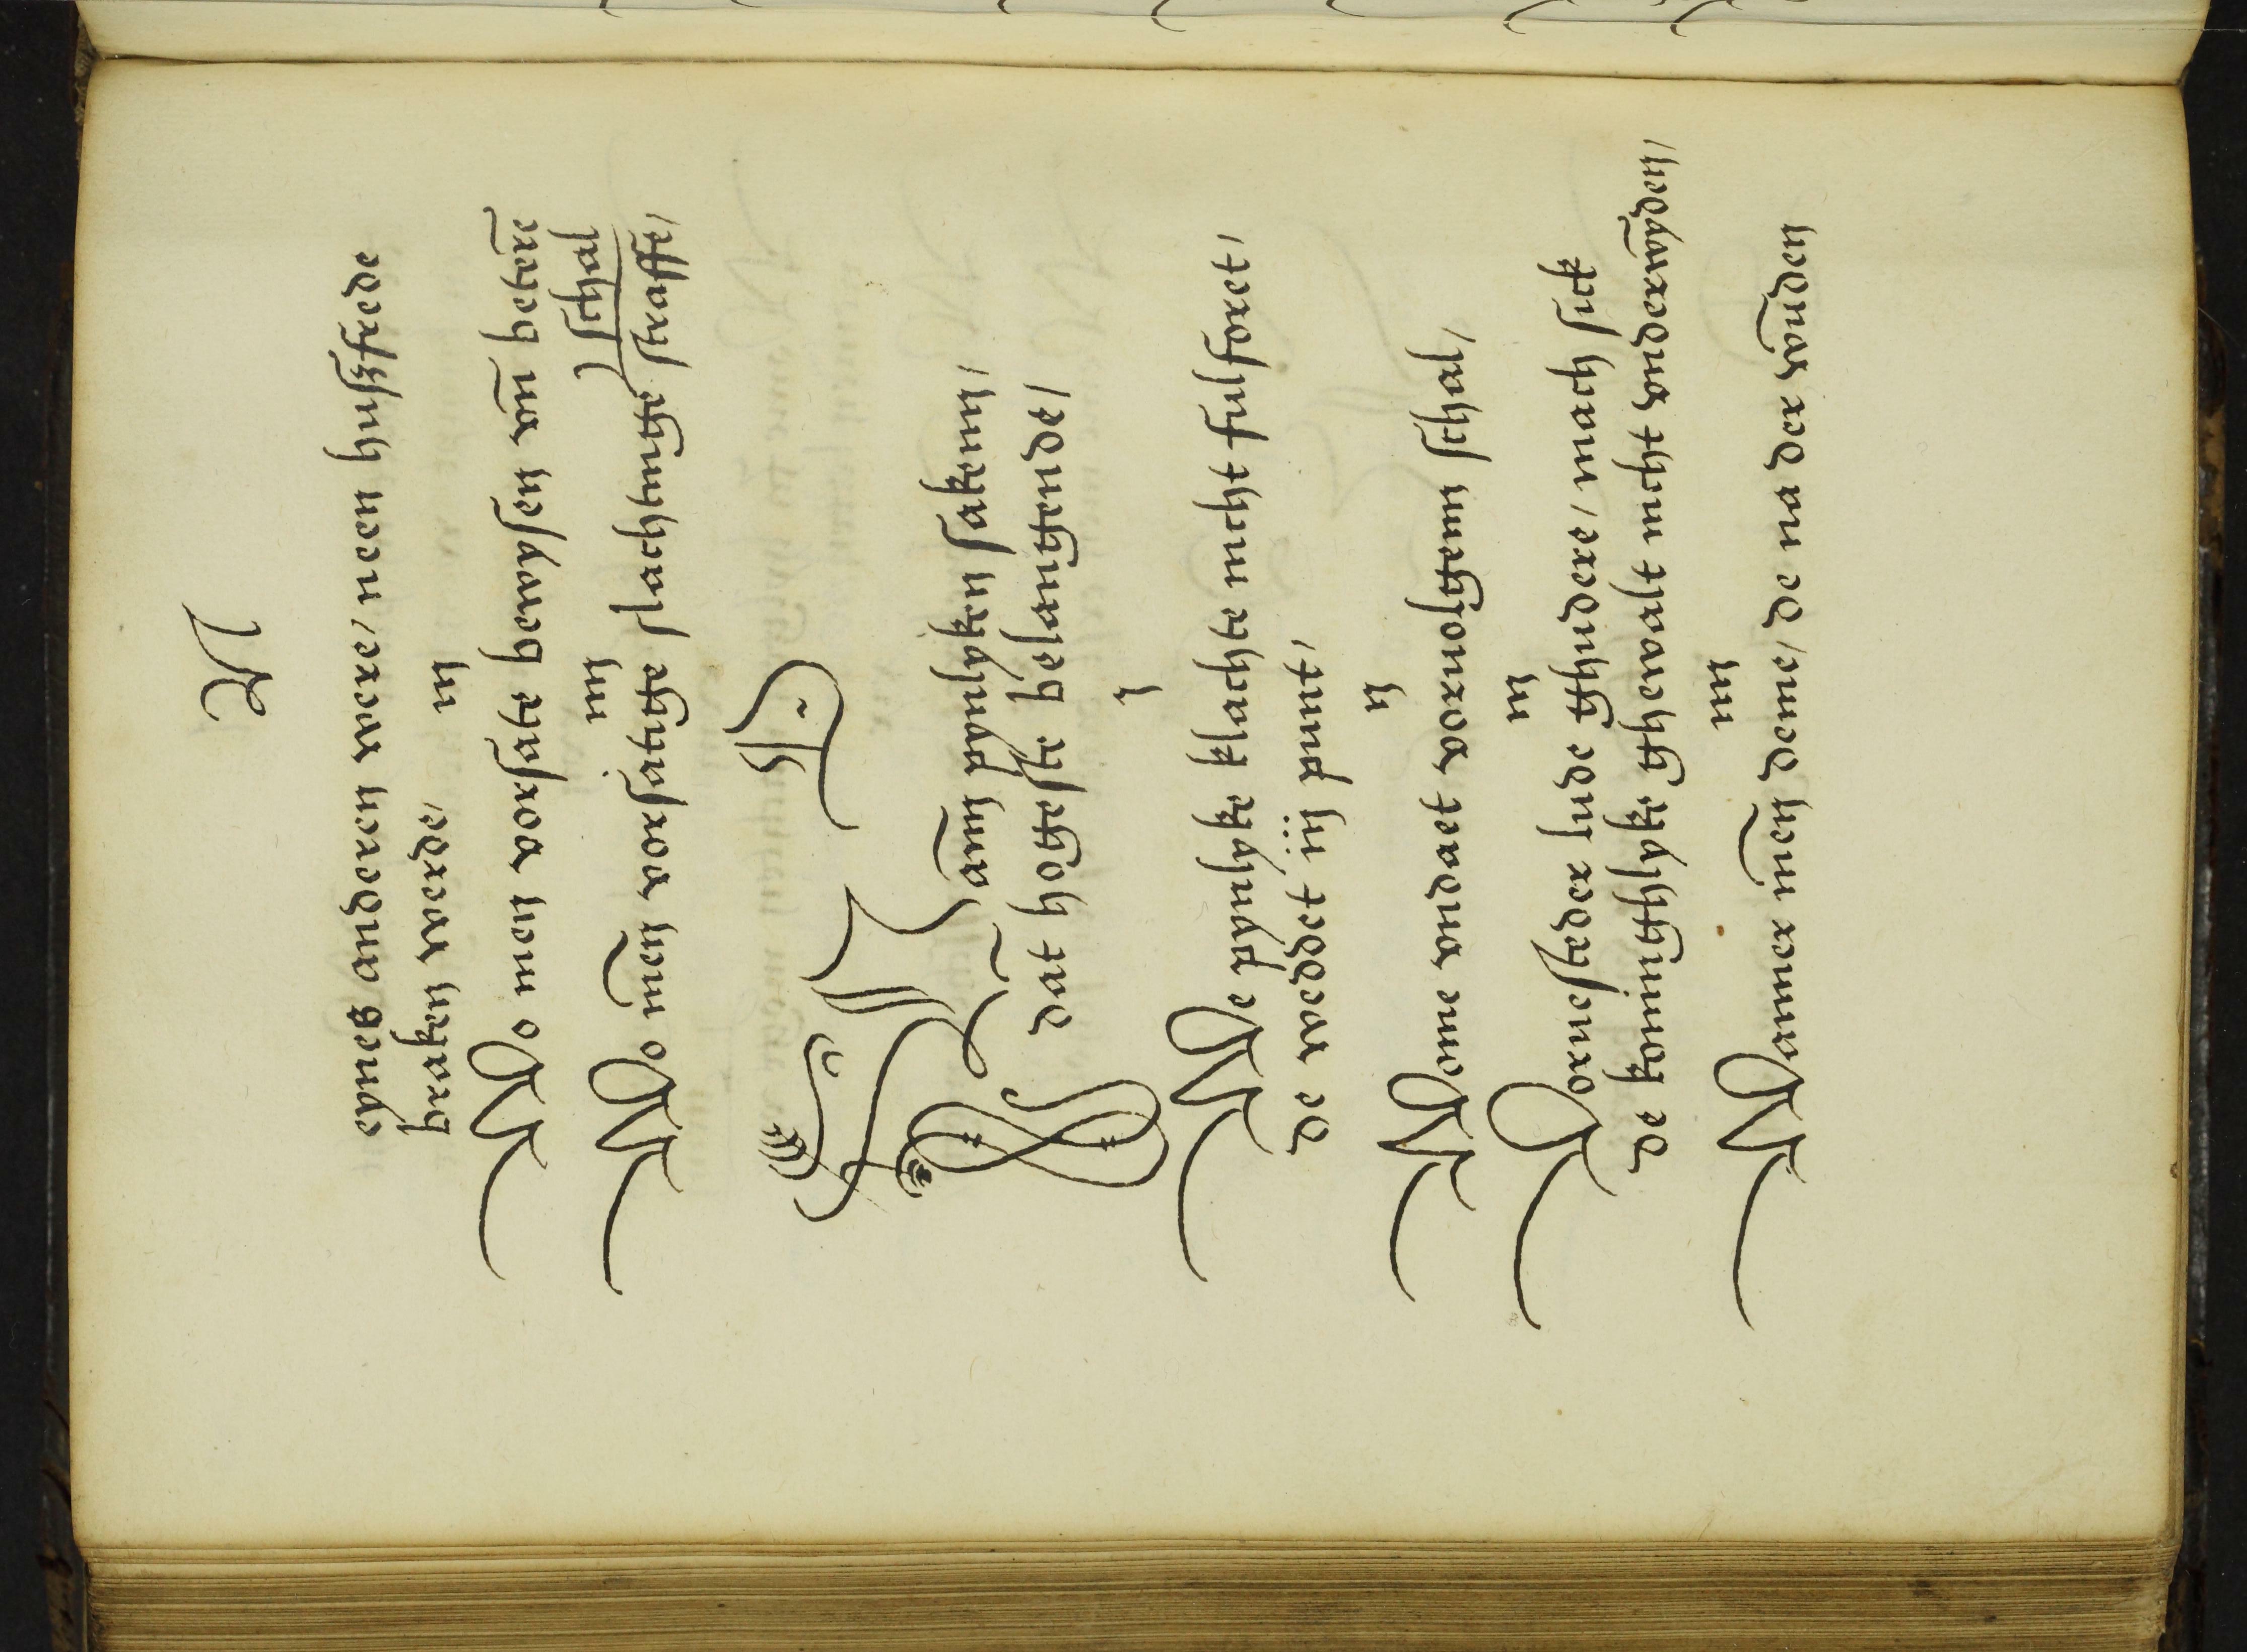 eynes anderen were / neen huszfrede
braken werde /
iij
Wo men vorsate bewysen vn̄ beterē
schal
iiij
Wo mēn vorsatige slachtinge straffe /
P
Vann pynlyken sakenn /
dat hogeste belangende /
j
We pynlyke klachte nicht fulforet /
de weddet iij punt /
ij
Weme vndaet voruolgenn schal /
iij
Vornesteder lude ghudere / mach sick
de koningklyke ghewalt nicht vnderwyden /
iiij
Wanner mēn deme / de na der vn̄den